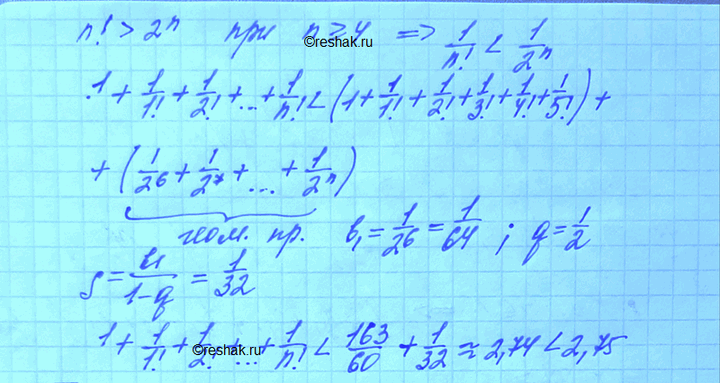 n! > 2ⁿ при n ≥ 4 => 1/n! < 1/2ⁿ
©reshak.ru
1 + 1/1! + 1/2! + ... + 1/n! < (1 + 1/1! + 1/2! + 1/3! + 1/4! + 1/5!) +
+ (1/2⁶ + 1/2⁷ + ... + 1/2ⁿ)
геом. пр. b₁ = 1/2⁶ = 1/64 ; q = 1/2
S = b₁/(1-q) = 1/32
1 + 1/1! + 1/2! + ... + 1/n! < 163/60 + 1/32 ≈ 2,74 < 2,75
©reshak.ru